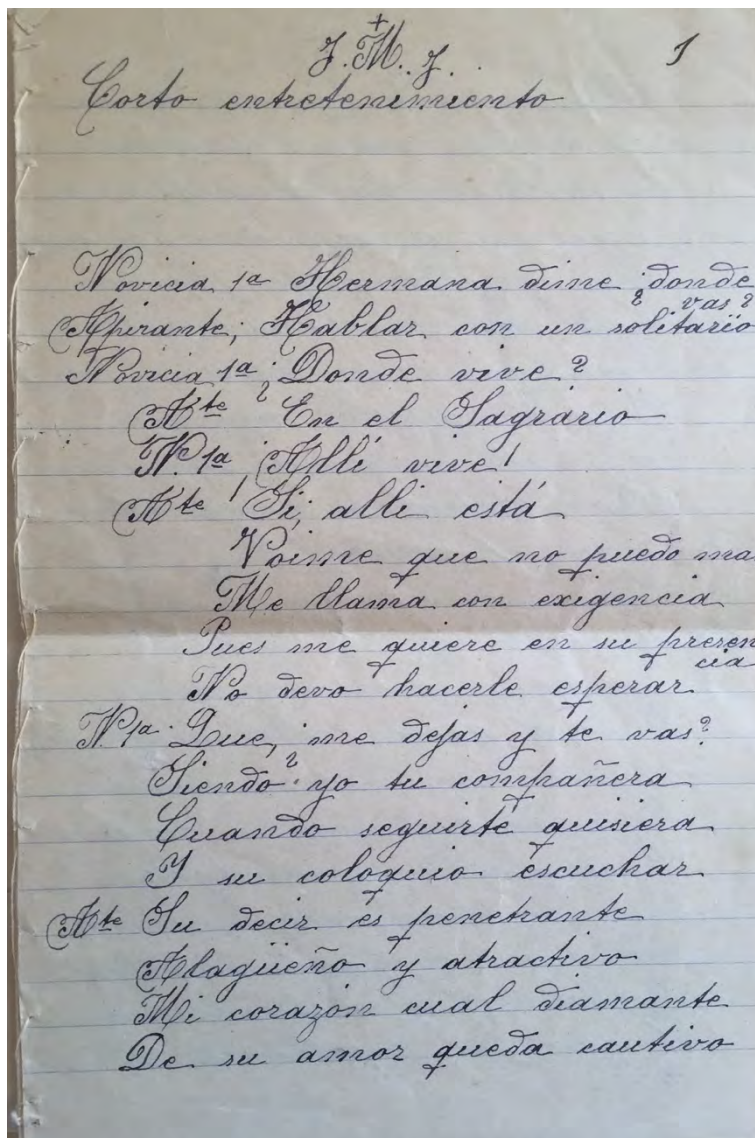 +
J. M. J. 1
Corto entretenimiento
Novicia 1ª Hermana dime ¿donde vas?
Apirante; Hablar con un solitario
Novicia 1ª ¿Donde vive?
Ate En el Sagrario
N. 1ª ¡Allí vive!
Ate Si, alli está
Voime que no puedo mas
Me llama con exigencia
Pues me quiere en su presencia
No devo hacerle esperar
N. 1ª Que, ¿me dejas y te vas?
Siendo yo tu compañera
Cuando seguirte quisiera
Y su coloquio escuchar
Ate Su decir es penetrante
Alagüeño y atractivo
Mi corazón cual diamante
De su amor queda cautivo